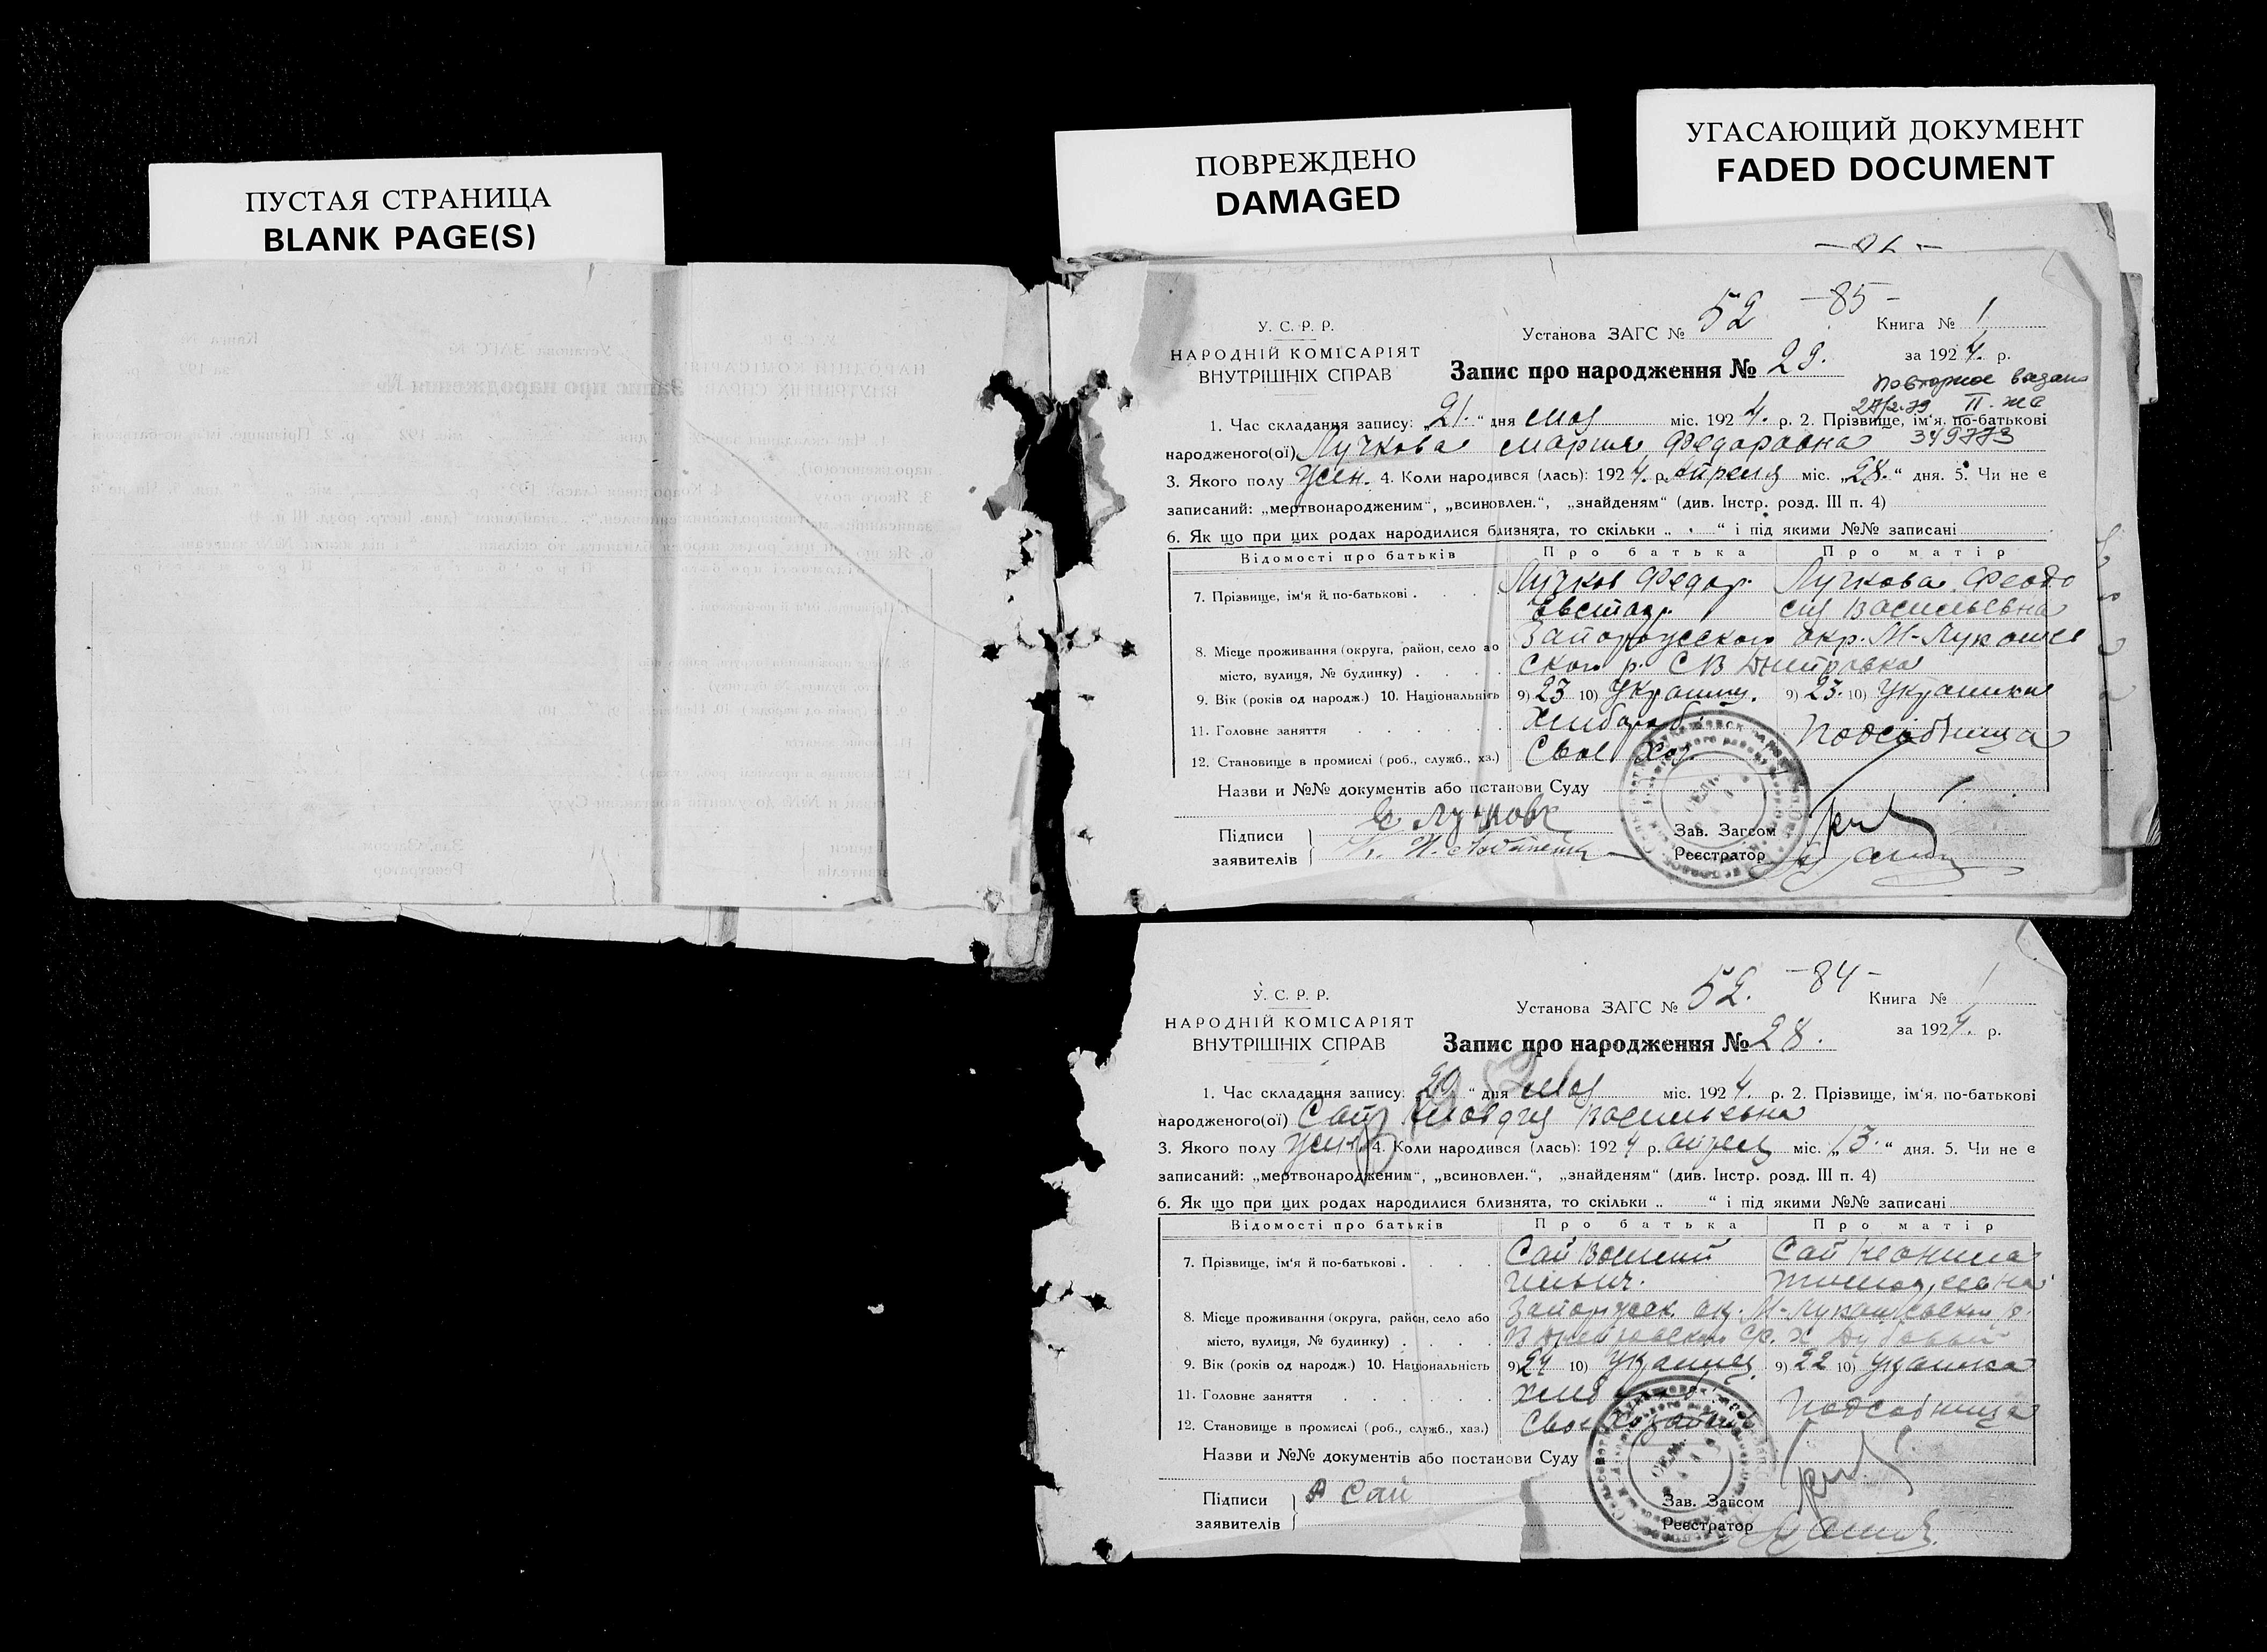 ПУСТАЯ СТРАНИЦА
BLANK PAGE(S)
ПОВРЕЖДЕНО
DAMAGED
УГАСАЮЩИЙ ДОКУМЕНТ
FADED DOCUMENT
У. С. Р. Р.
НАРОДНІЙ КОМІСАРІЯТ
ВНУТРІШНІХ СПРАВ
Установа ЗАГС № 52 -85- Книга № 1
Запис про народження № 29. за 1924. р.
Повторное выдано
349773
1. Час складання запису: „21.“ дня мая міс. 1924. р. 2. Прізвище, ім'я, по-батькові
народженого(ої) Лучкова Мария Федоровна
3. Якого полу жен. 4. Коли народився (лась): 1924 р. Апреля міс. „28.“ дня. 5. Чи не є
записаний: „мертвонародженим“, „всиновлен.“, „знайденям“ (див. Інстр. розд. III п. 4)
6. Як що при цих родах народилися близнята, то скільки „ “ і під якими №№ записані
Відомості про батьків Про батька Про матір
7. Прізвище, ім'я й по-батькові Лучков Федор Лучкова Феодо
Евстаф. сия Васильевна
8. Місце проживання (округа, район, село або Запорожского окр. М-Лукашев
місто, вулиця, № будинку) ского р. С В Днепровка
9. Вік (років од народж.) 10. Національність 9) 23 10) Украинец. 9) 23. 10) Украинка
11. Головне заняття Хлебороб. Подсобница
12. Становище в промислі (роб., служб., хз.) Свое Хоз.
Назви и №№ документів або постанови Суду
Підписи заявителів Лучков
Зав. Загсом
Реєстратор
У. С. Р. Р.
НАРОДНІЙ КОМІСАРІЯТ
ВНУТРІШНІХ СПРАВ
Установа ЗАГС № 52. -84- Книга № 1
Запис про народження № 28. за 1924. р.
1. Час складання запису: „20“ дня мая міс. 1924. р. 2. Прізвище, ім'я, по-батькові
народженого(ої) Сай Васильевна
3. Якого полу жен. 4. Коли народився (лась): 1924 р. апреля міс. „13.“ дня. 5. Чи не є
записаний: „мертвонародженим“, „всиновлен.“, „знайденям“ (див. Інстр. розд. III п. 4)
6. Як що при цих родах народилися близнята, то скільки „ “ і під якими №№ записані
Відомості про батьків Про батька Про матір
7. Прізвище, ім'я й по-батькові Сай Василий Сай
Ильич.
8. Місце проживання (округа, район, село або Запорожск. ок. М-Лукашевского р.
місто, вулиця, № будинку) В Днепровского с/с. х
9. Вік (років од народж.) 10. Національність 9) 24 10) Украинец 9) 22 10) Украинка
11. Головне заняття Подсобница
12. Становище в промислі (роб., служб., хаз.) Свое Хозяйство
Назви и №№ документів або постанови Суду
Підписи заявителів Сай
Зав. Загсом
Реєстратор